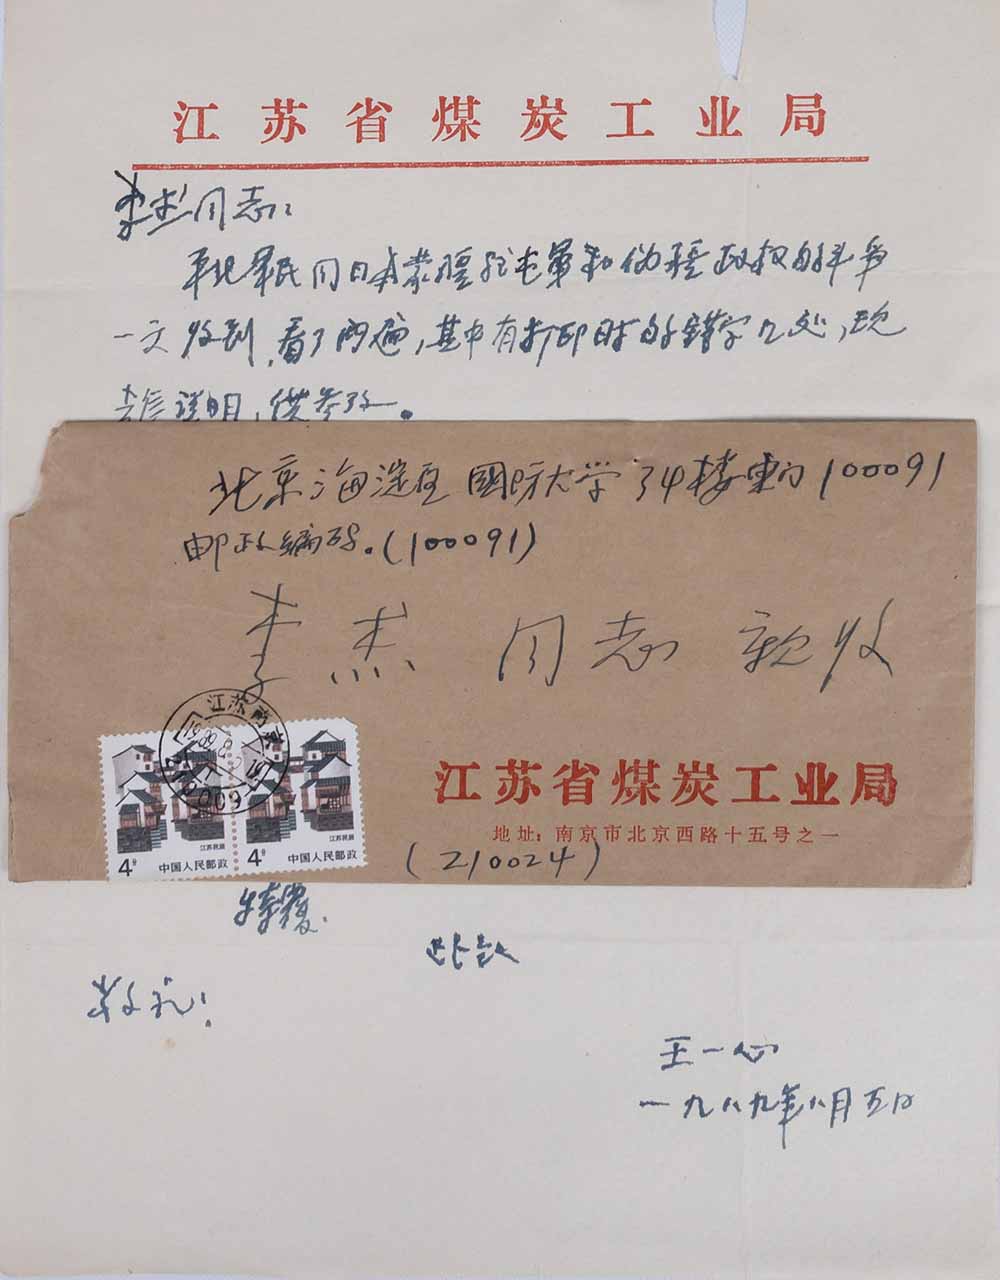 江苏省煤炭工业局
李杰同志:
军民同日本蒙疆驻屯军和伪疆政权的斗争
一文收到,看了两遍,其中有打印时的错字几处,现
去信说明,供参改。
北京海淀区國防大学34楼东门100091
邮政编码.(100091)
李杰同志親收
江苏南京
中国人民邮政
江苏民居
4分
中国人民邮政
江苏民居
4分
江苏省煤炭工业局
地址:南京市北京西路十五号之一
(210024)
特覆.
此致
敬礼!
王一心
一九八九年八月五日